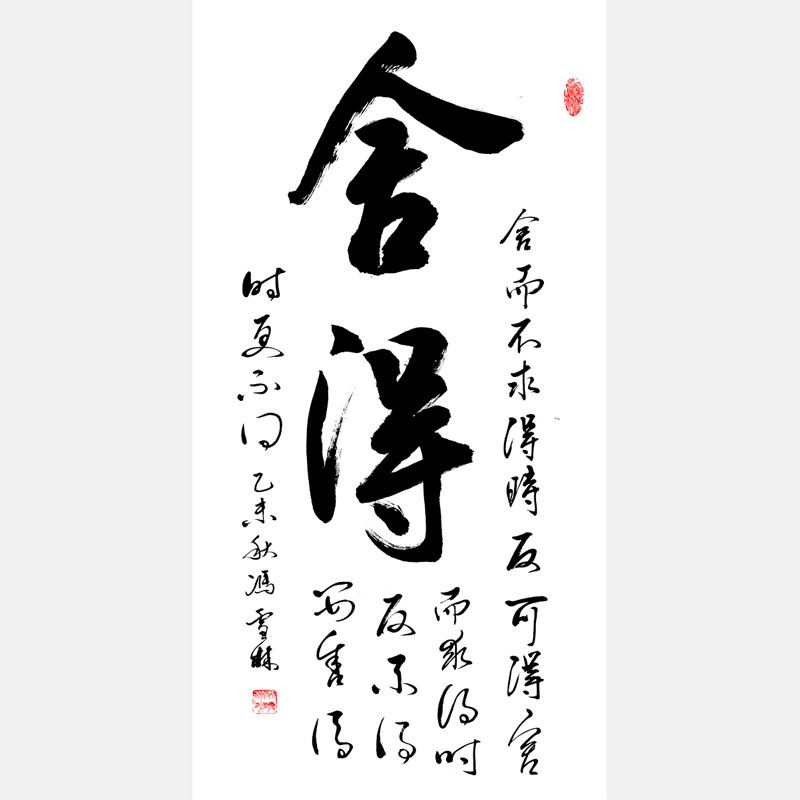 舍得
舍而不求得時反可得舍
而求得时
反不得
得
时更不同
乙未秋馮雪林